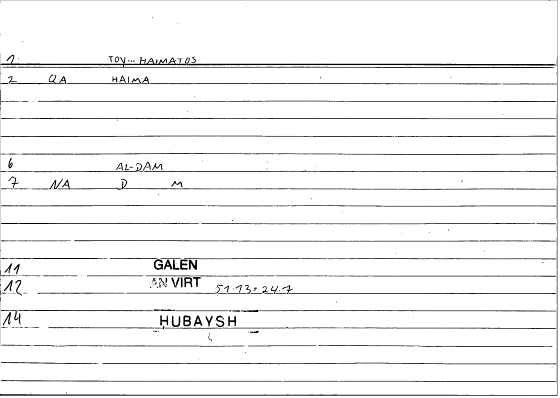 1 TOY... HAIMATOS
2 QA HAIMA
6 AL-DAM
7 NA D M
11 GALEN
12 AN VIRT 51.13=24.7
14 HUBAYSH